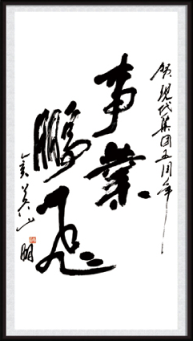 贺现代集团五周年
事業
鹏飞